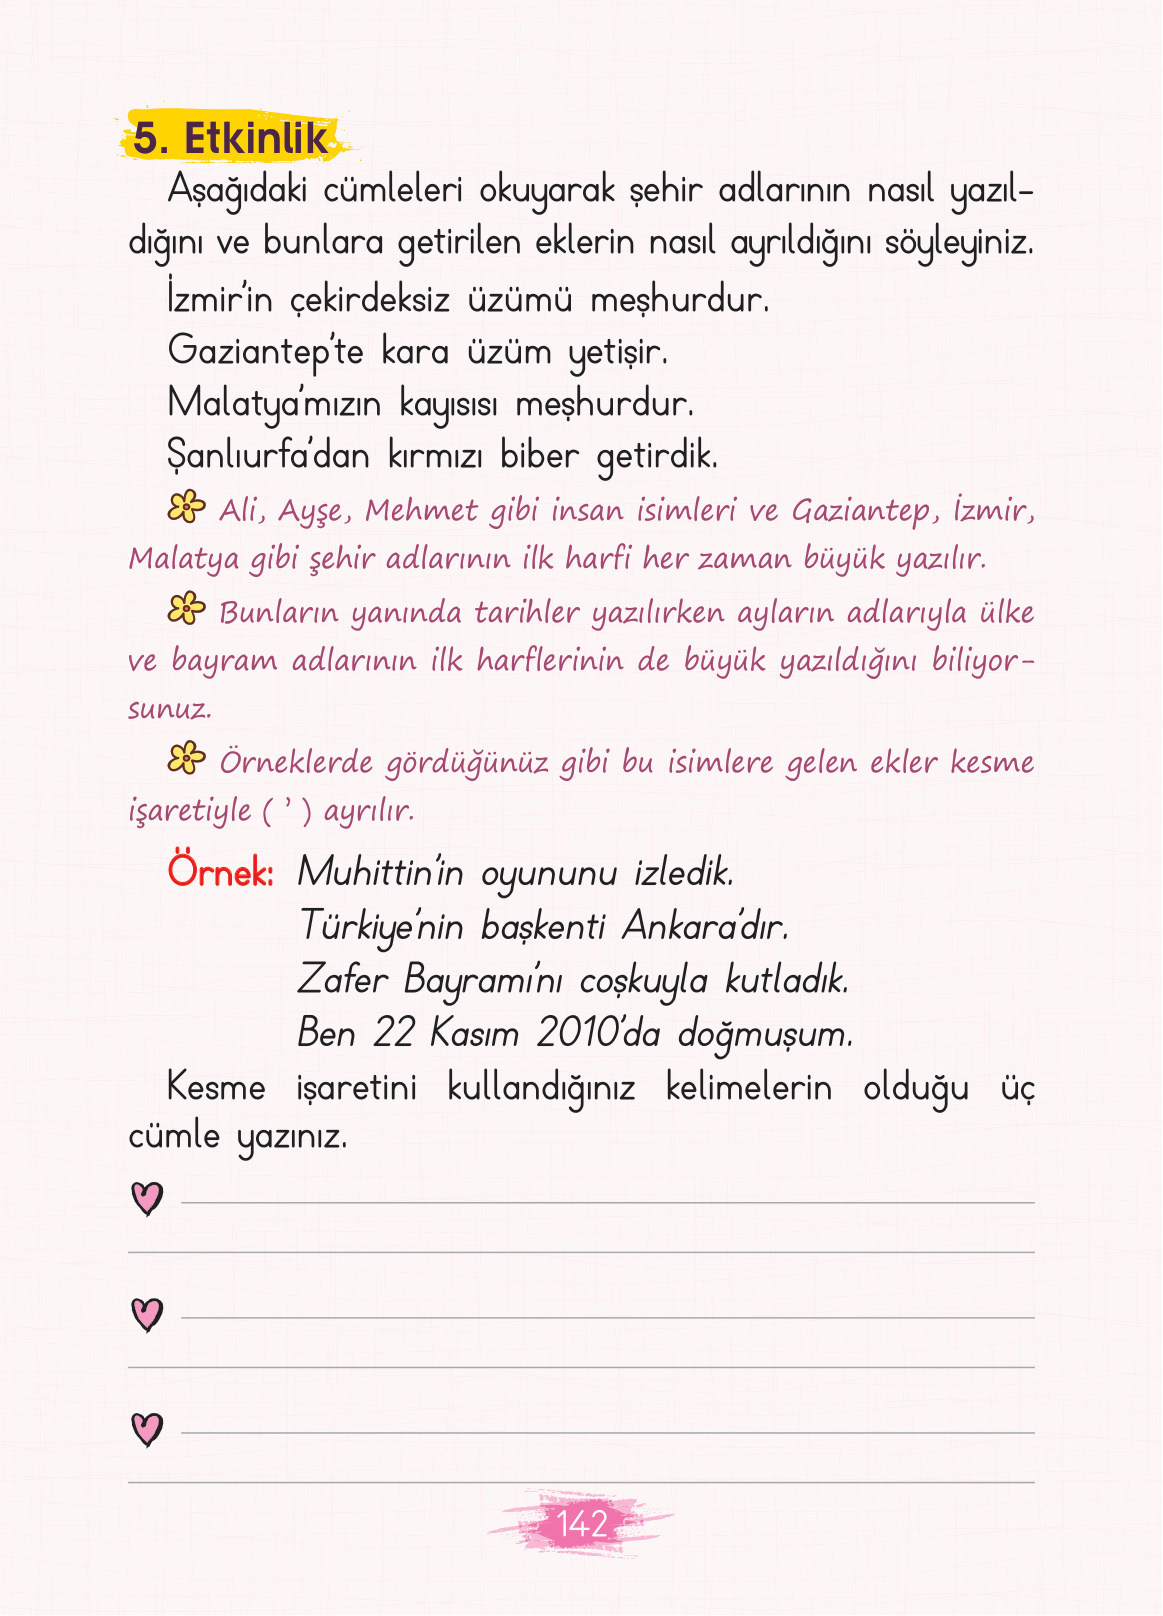 5. Etkinlik
Aşağıdaki cümleleri okuyarak şehir adlarının nasıl yazıl-
dığını ve bunlara getirilen eklerin nasıl ayrıldığını söyleyiniz.
İzmir’in çekirdeksiz üzümü meşhurdur.
Gaziantep’te kara üzüm yetişir.
Malatya’mızın kayısısı meşhurdur.
Şanlıurfa’dan kırmızı biber getirdik.
Ali, Ayşe, Mehmet gibi insan isimleri ve Gaziantep, İzmir,
Malatya gibi şehir adlarının ilk harfi her zaman büyük yazılır.
Bunların yanında tarihler yazılırken ayların adlarıyla ülke
ve bayram adlarının ilk harflerinin de büyük yazıldığını biliyor-
sunuz.
Örneklerde gördüğünüz gibi bu isimlere gelen ekler kesme
işaretiyle ( ’ ) ayrılır.
Örnek: Muhittin’in oyununu izledik.
Türkiye’nin başkenti Ankara’dır.
Zafer Bayramı’nı coşkuyla kutladık.
Ben 22 Kasım 2010’da doğmuşum.
Kesme işaretini kullandığınız kelimelerin olduğu üç
cümle yazınız.
142